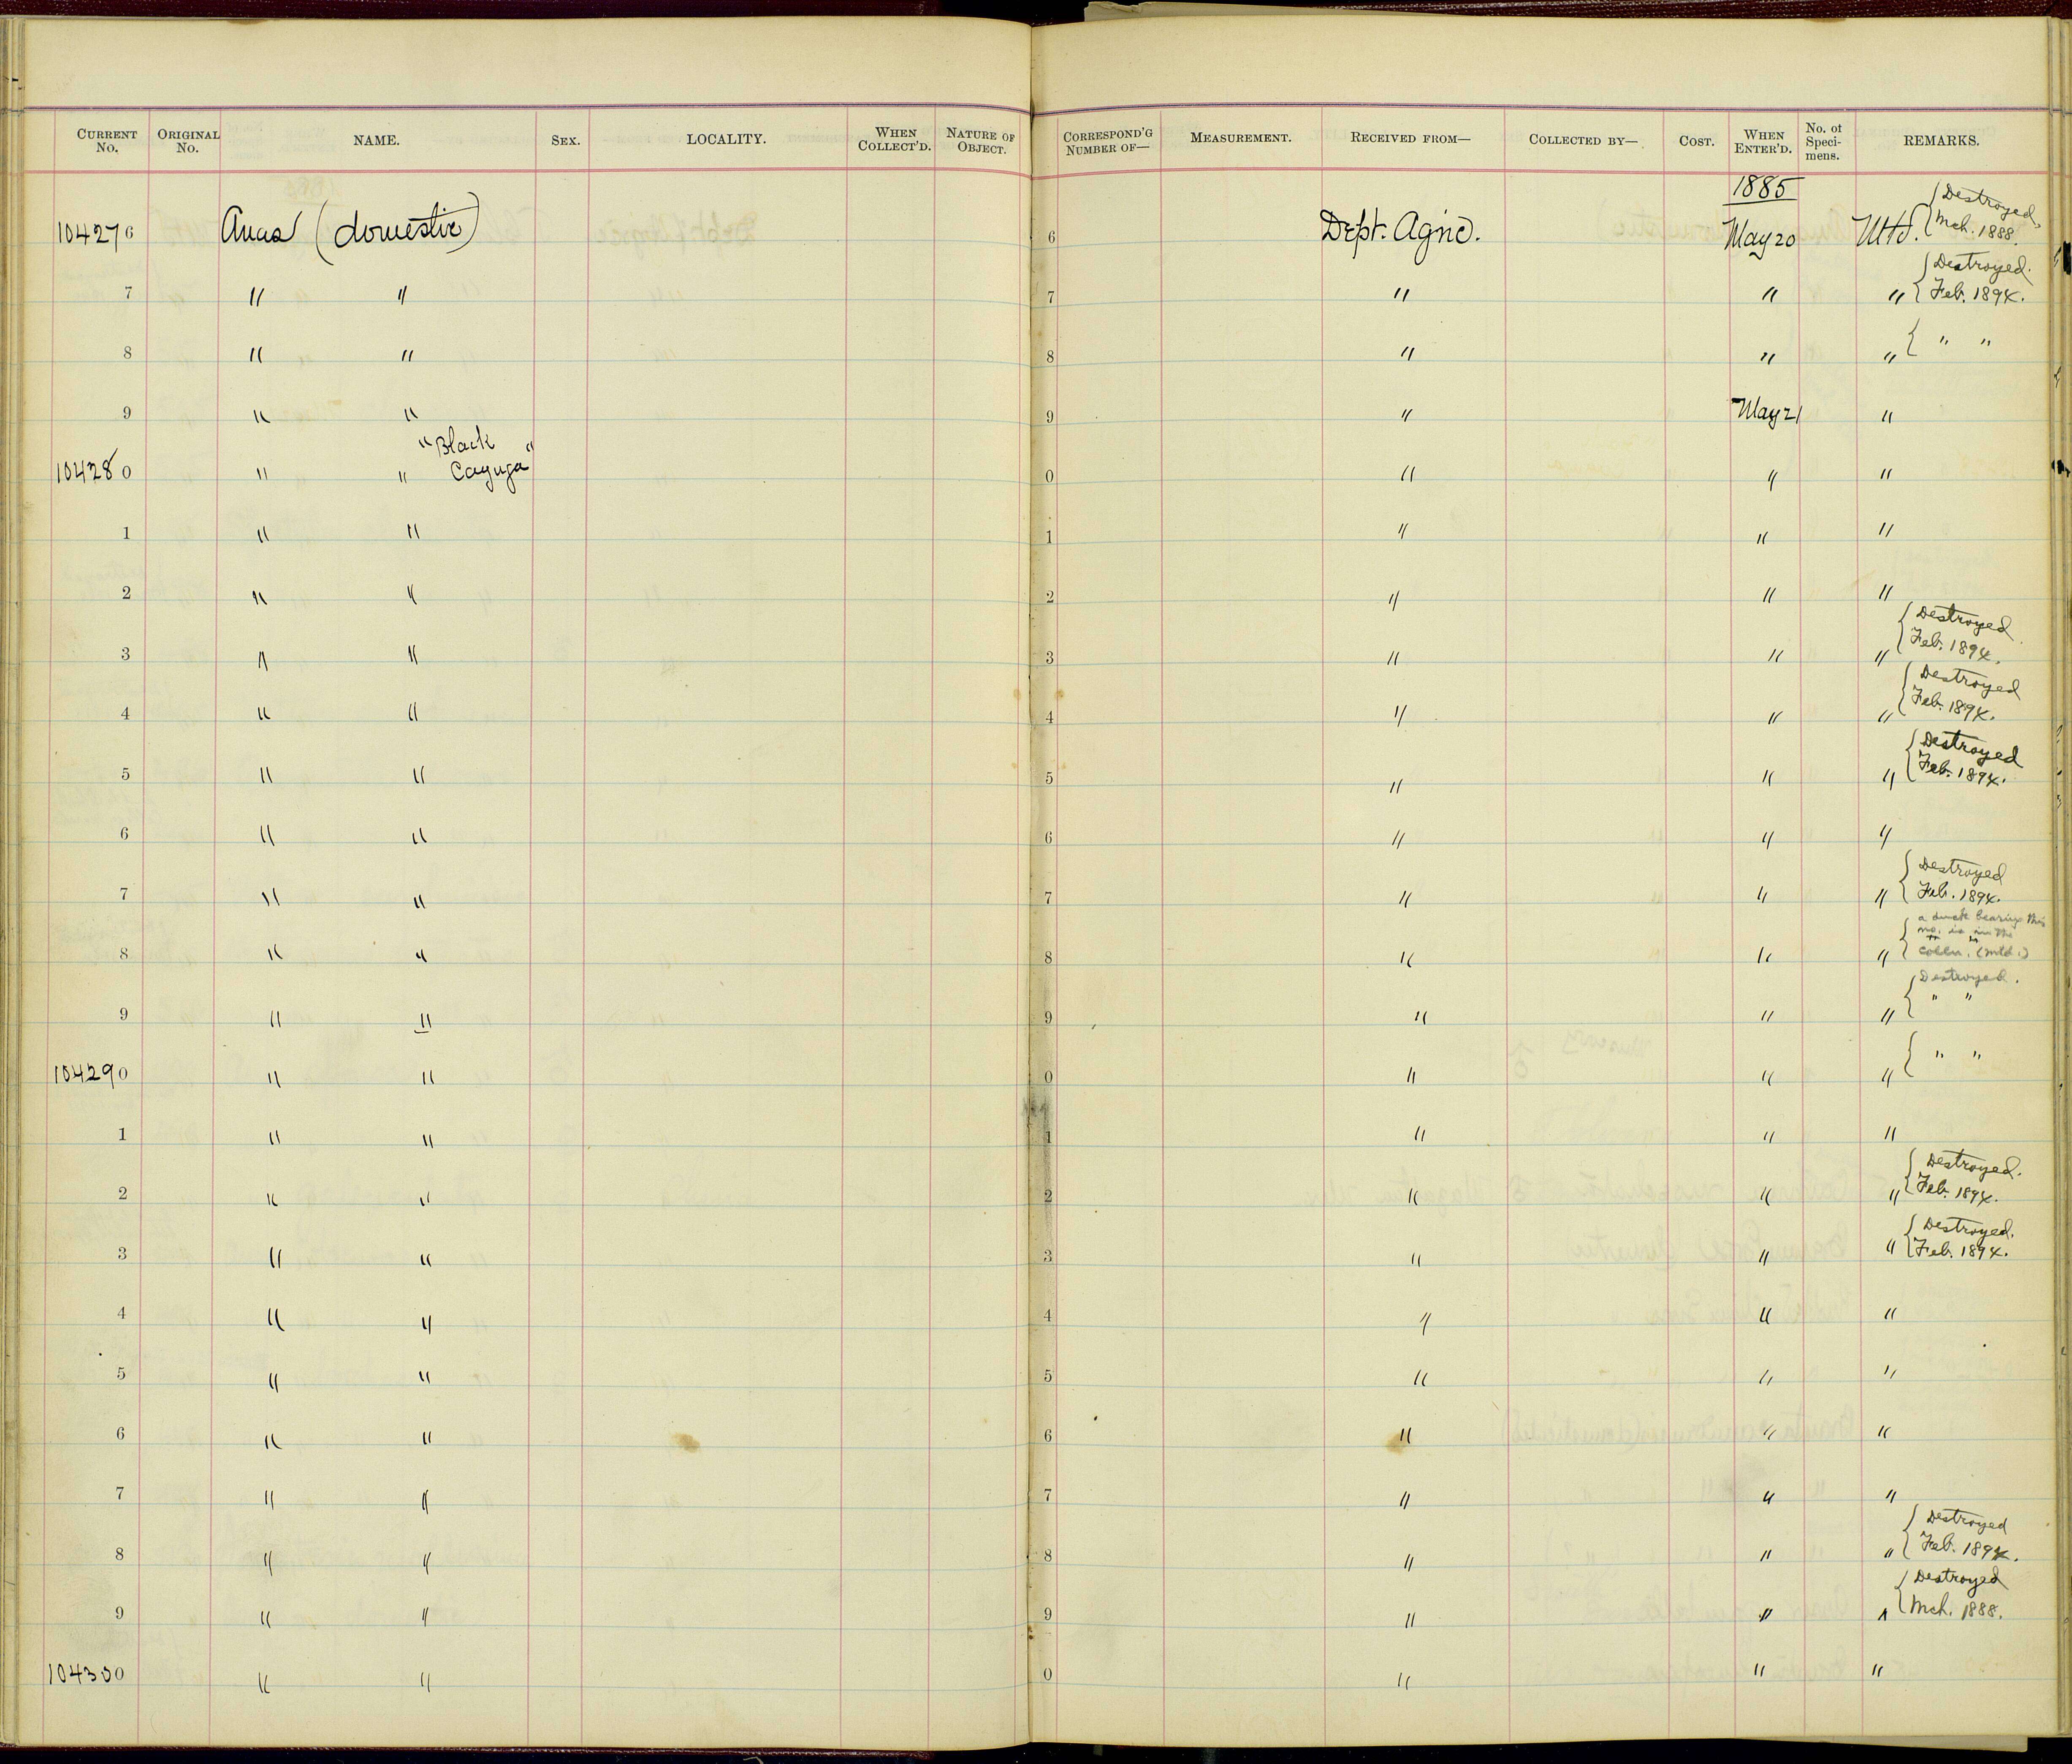 CURRENT No. ORIGINAL No. NAME. SEX. LOCALITY. WHEN COLLECT'D. NATURE OF OBJECT. CORRESPOND'G NUMBER OF— MEASUREMENT. RECEIVED FROM— COLLECTED BY— COST. WHEN ENTER'D. No. of Speci-mens. REMARKS.
1885
104276 Anas (domestic) 6 Dept. Agric. May 20 Mtd. { Destroyed, Mch. 1888.
7 " " 7 " " " { Destroyed. Feb. 1894.
8 " " 8 " " " { " "
9 " " 9 " May 21 "
104280 " " "Black Cayuga" 0 " " "
1 " " 1 " " "
2 " " 2 " " "
3 " " 3 " " " { Destroyed Feb. 1894.
4 " " 4 " " " { Destroyed Feb. 1894.
5 " " 5 " " " { Destroyed Feb. 1894.
6 " " 6 " " "
7 " " 7 " " " { Destroyed Feb. 1894.
8 " " 8 " " " { a duck bearing this no. is in the colln. (mtd.)
9 " " 9 " " " { Destroyed. " "
104290 " " 0 " " " { " "
1 " " 1 " " "
2 " " 2 " " " { Destroyed. Feb. 1894.
3 " " 3 " " " { Destroyed. Feb. 1894.
4 " " 4 " " "
5 " " 5 " " "
6 " " 6 " " "
7 " " 7 " " "
8 " " 8 " " " { Destroyed Feb. 1894.
9 " " 9 " " " { Destroyed Mch. 1888.
104300 " " 0 " " "